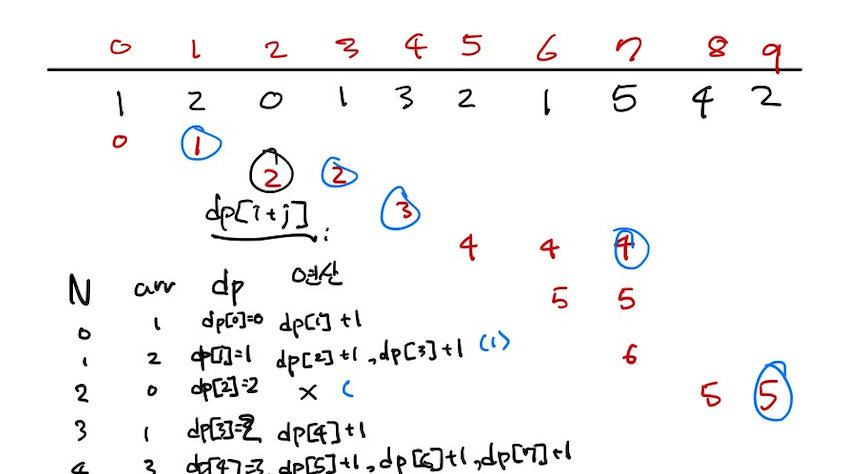 0 1 2 3 4 5 6 7 8 9
1 2 0 1 3 2 1 5 4 2
0 1
2 2
dp[i+j] : 3
4 4 4
N arr dp 연산
5 5
0 1 dp[0]=0 dp[1]+1
1 2 dp[1]=1 dp[2]+1, dp[3]+1 (1)
6
2 0 dp[2]=2 X (
5 5
3 1 dp[3]=2 dp[4]+1
4 3 dp[4]=3, dp[5]+1, dp[6]+1, dp[7]+1